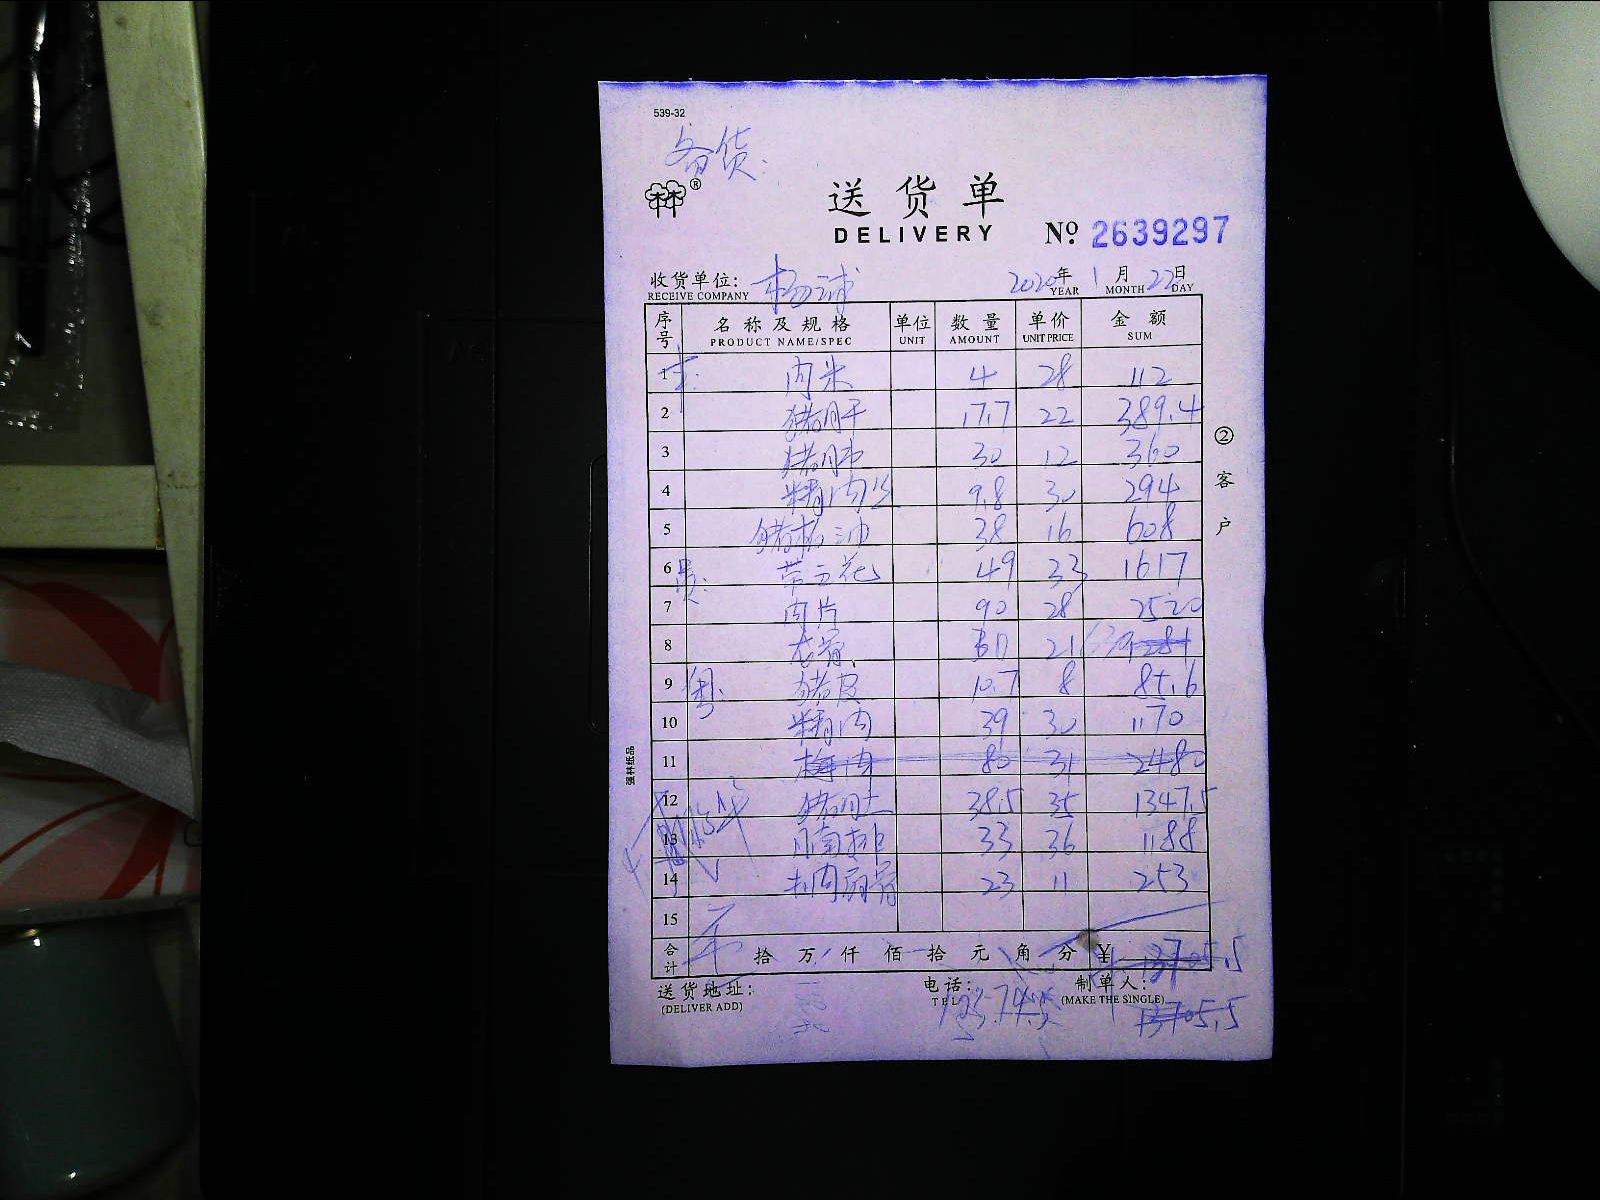 539-32
备货:
送货单
DELIVERY
№ 2639297
收货单位: 杨诚 2020年 1月 22日
RECEIVE COMPANY YEAR MONTH DAY
序号 名称及规格 单位 数量 单价 金额
PRODUCT NAME/SPEC UNIT AMOUNT UNIT PRICE SUM
1 肉米 4 28 112
2 猪肝 17.7 22 389.4
3 猪肺 30 12 360
4 精肉丝 9.8 30 294
5 猪板油 38 16 608
6 带五花 49 33 1617
7 肉片 90 28 2520
8 龙骨 21
9 粤: 猪皮 10.7 8 85.6
10 精肉 39 30 1170
11 梅肉 80 31 2480
12 猪肚 38.5 35 1347.5
13 腩排 33 36 1188
14 扇骨 23 11 253
15
合计 拾 万 仟 佰 拾 元 角 分 ¥ 13705.5
送货地址: 电话: 制单人:
(DELIVER ADD) TEL (MAKE THE SINGLE)
13705.5
②客户
强林纸品